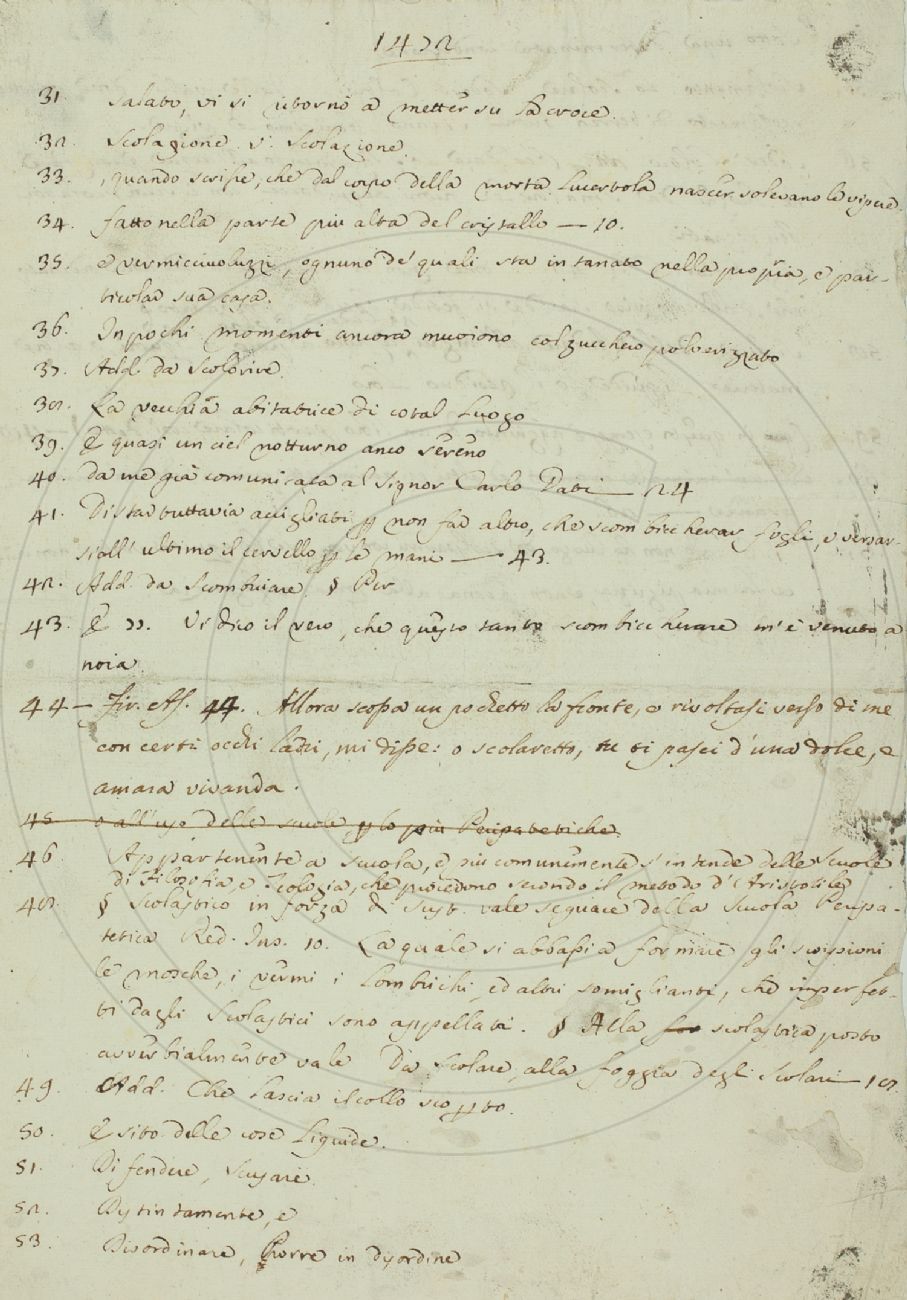 1472
31. salato, vi si ritornò a metter su la croce.
32. Scolagione. V. Scolazione
33. , quando scrisse, che dal corpo della morta Lucertola nascer solevano le vipere.
34. fatto nella parte più alta del cristallo — 10.
35. e vermicciuoluzzi, ognuno de' quali sta intanato nella propria, e par-
ticolar sua casa.
36. In pochi momenti ancora muoiono col zucchero polverizzato
37. Add. da Scolorire.
38. La vecchia abitatrice di cotal Luogo
39. E quasi un ciel notturno anco sereno
40. da me già comunicata al Signor Carlo Dati — 24
41. Di star tuttavia accigliati, e non far altro, che scombiccherar fogli, e versar-
si all' ultimo il cervello per le mani — 43.
42. Add. da Scombuiare § Per
43. E 77. Vi dico il vero, che questo tanto scombiccherare m' è venuto a
noia.
44 — Fir. As. 44. Allora scossa un pochetto la fronte, e rivoltasi verso di me
con certi occhi ladri, mi disse: o scolaretto, tu ti pasci d'una dolce, e
amara vivanda.
45 o all'uso delle scuole per lo più Peripatetiche.
46. Appartenente a Scuola, e più comunemente s'intende delle Scuole
di Filosofia, e Teologia, che procedono secondo il metodo d'Aristotile
48. § Scolastico in forza di sust. vale seguace della Scuola Peripa-
tetica Red. Ins. 10. La quale si abbassi a formare gli scorpioni
le mosche, i vermi i Lombrichi, ed altri somiglianti, che imperfet-
ti dagli Scolastici sono appellati. § Alla scolastica posto
avverbialmente vale Da Scolare, alla foggia degli Scolari — 18.
49. Add. Che lascia il collo scoperto.
50. E sito delle cose Liquide.
51. Difendere, Scusare.
52. Distintamente, e
53. Disordinare, Porre in disordine